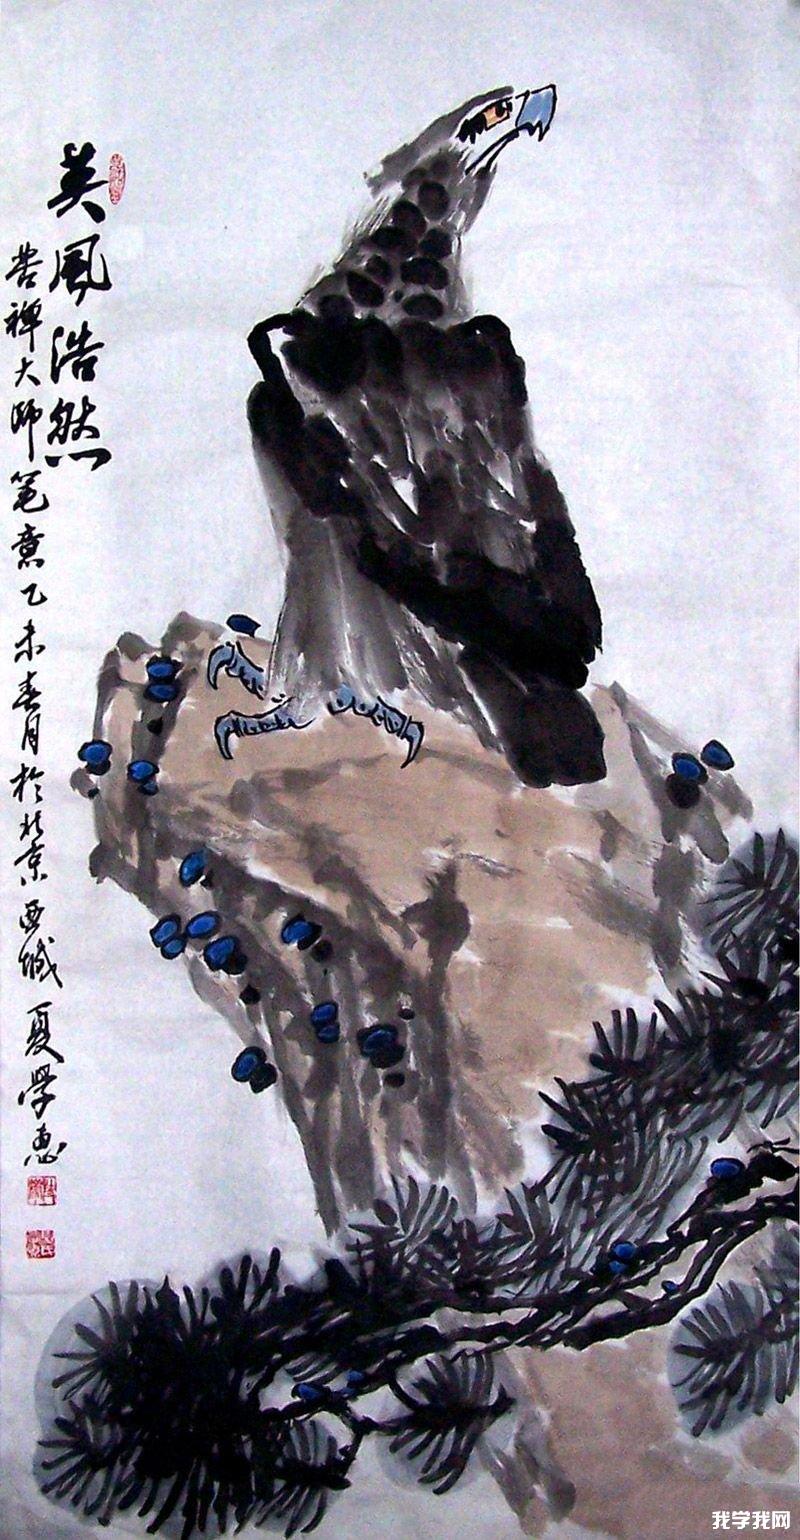 英风浩然
苦禅大师笔意乙未春月於北京西城夏学惠
我学我网